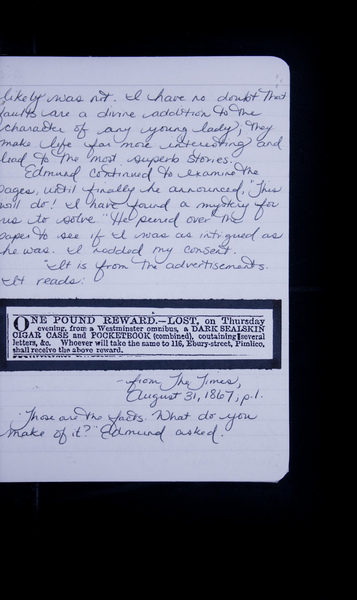 likely was not. I have no doubt that
faults are a divine addition to the
character of any young lady; they
make life far more interesting and
lead to the most superb stories.
Edmund continued to examine the
pages, until finally he announced, "This
will do! I have found a mystery for
us to solve." He peered over the
paper to see if I was as intrigued as
he was. I nodded my consent.
"It is from the advertisements.
It reads:
ONE POUND REWARD.—LOST, on Thursday
evening, from a Westminster omnibus, a DARK SEALSKIN
CIGAR CASE and POCKETBOOK (combined), containing several
letters, &c. Whoever will take the same to 116, Ebury-street, Pimlico,
shall receive the above reward.
-from The Times,
August 31, 1867, p.1.
"Those are the facts. What do you
make of it?" Edmund asked.